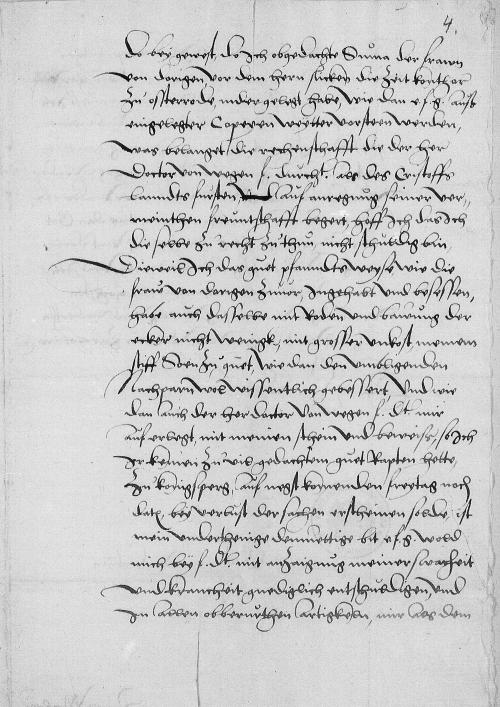 4.
do bey gewest, do Ich obgedachte Suma der frawn
von dorigen vor dem hern sucken die Zeit konthor
Zu osterrode, nider gelegt habe, wie dan e f g. auß
eingelegter Copeyen weytter vorsteen werden,
was belanget, die rechenschafft die der her
Doctor von wegen f. durcht. als des Cristoffs
lanndts fursten, auf anregnug seiner ver,
meinthen freuntschafft begert, hoff Ich das Ich
die selbe Zu recht Zu thun, nicht schuldig bin,
Dieweil Ich das guet pfanndts weyse wie die
fraw von dorigen Zuuor, Ingehabt und besessen,
habe auch dasselbe mit Roden und bawung der
ecker nicht wenigk, mit grosser unkost, meinem
stiff Soen Zu guet, wie dan den umbligenden
Nachparn wol wissentlich gebessert, Und wie
dan auch der her doctor Von wegen f. Dt. mir
auf erlegt, mit meinen schein und beweise, so Ich
Zu konigsperg, auf negst komenden freytag noch
dato, bey verlust der sachen erscheinen solde, ist
mein underthenige demuettige bit e f g. wold
mich bey f. Dt. mit anzaignug meiner swacheit
und kranckeit gnediglich entschuldigen, und
In allen obberurthen artigkeln, mir als dem